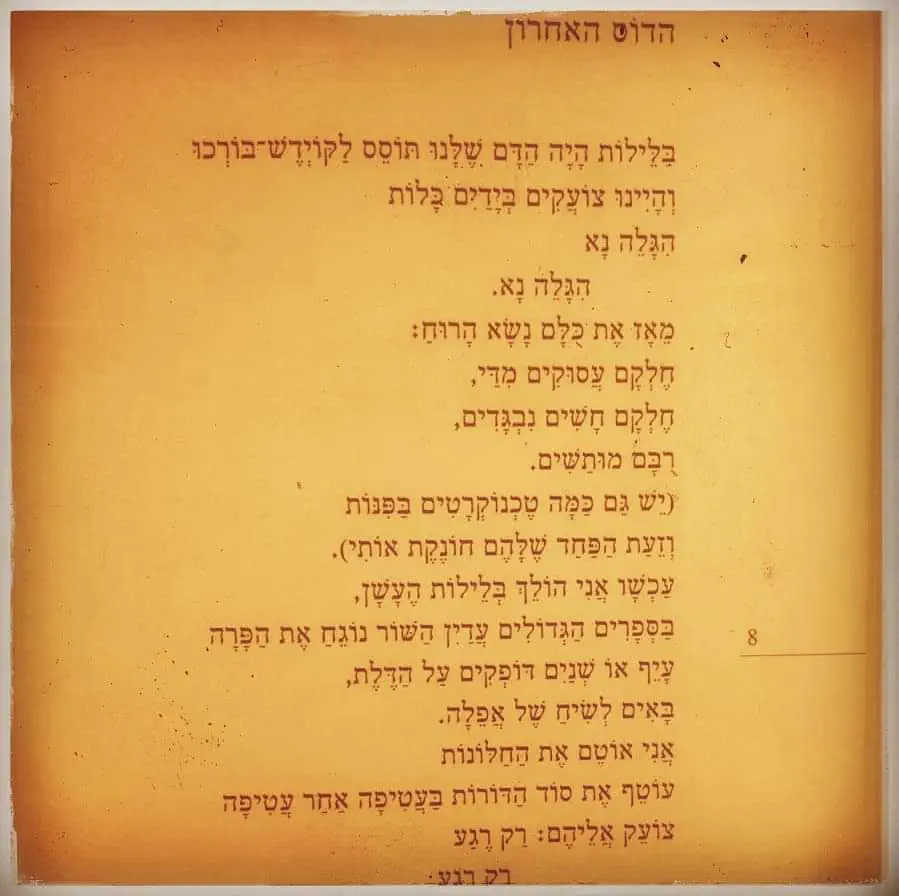 הדוס האחרון
בַּלֵּילוֹת הָיָה הַדָּם שֶׁלָּנוּ תּוֹסֵס לַקּוֹיְדֶשׁ־בּוֹרְכוּ
וְהָיִינוּ צוֹעֲקִים בְּיָדַיִם כָּלוֹת
הִגָּלֵה נָא
הִגָּלֵה נָא.
מֵאָז אֶת כֻּלָּם נָשָׂא הָרוּחַ:
חֶלְקָם עֲסוּקִים מִדַּי,
חֶלְקָם חָשִׁים נִבְגָּדִים,
רֻבָּם מוּתַשִּׁים.
(יֵשׁ גַּם כַּמָּה טֶכְנוֹקְרָטִים בַּפִּנּוֹת
וְזֵעַת הַפַּחַד שֶׁלָּהֶם חוֹנֶקֶת אוֹתִי).
עַכְשָׁו אֲנִי הוֹלֵךְ בְּלֵילוֹת הֶעָשָׁן,
בַּסְּפָרִים הַגְּדוֹלִים עֲדַיִן הַשּׁוֹר נוֹגֵחַ אֶת הַפָּרָה
עָיֵף אוֹ שְׁנַיִם דּוֹפְקִים עַל הַדֶּלֶת,
בָּאִים לְשִׂיחַ שֶׁל אֲפֵלָה.
אֲנִי אוֹטֵם אֶת הַחַלּוֹנוֹת
עוֹטֵף אֶת סוֹד הַדּוֹרוֹת בַּעֲטִיפָה אַחַר עֲטִיפָה
צוֹעֵק אֲלֵיהֶם: רַק רֶגַע
רַק רֶגַע
8